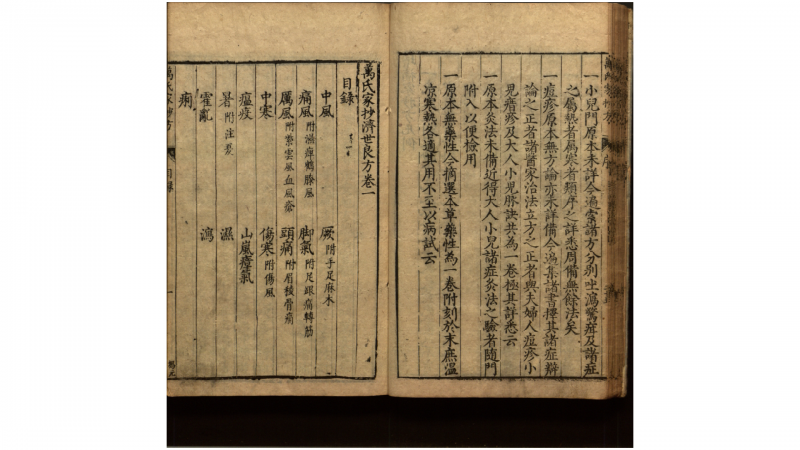 一小兒門原本未詳今遍索諸方分別吐瀉驚疳及諸症
之屬熱者屬寒者類序之詳悉周備無餘法矣
一痘疹原本無方論亦未詳備今遍集諸書擇其諸症辯
論之正者諸醫家治法立方之正者與夫婦人痘疹小
兒瘄疹及大人小兒脉訣共為一卷極其詳悉云
一原本灸法未備近得大人小兒諸症灸法之驗者隨門
附入以便檢用
一原本無藥性今摘選本草藥性為一卷附刻於末庶溫
凉寒熱各適其用不至以病試云
萬氏家抄濟世良方卷一
目錄
中風
厥附手足麻木
痛風附濕痺鶴膝風
脚氣附足跟痛轉筋
厲風附紫雲風血風瘡
頭痛附眉稜骨痛
中寒
傷寒附傷風
瘟疫
山嵐瘴氣
暑附注夏
濕
霍亂
瀉
痢
萬氏家抄方
目錄
一